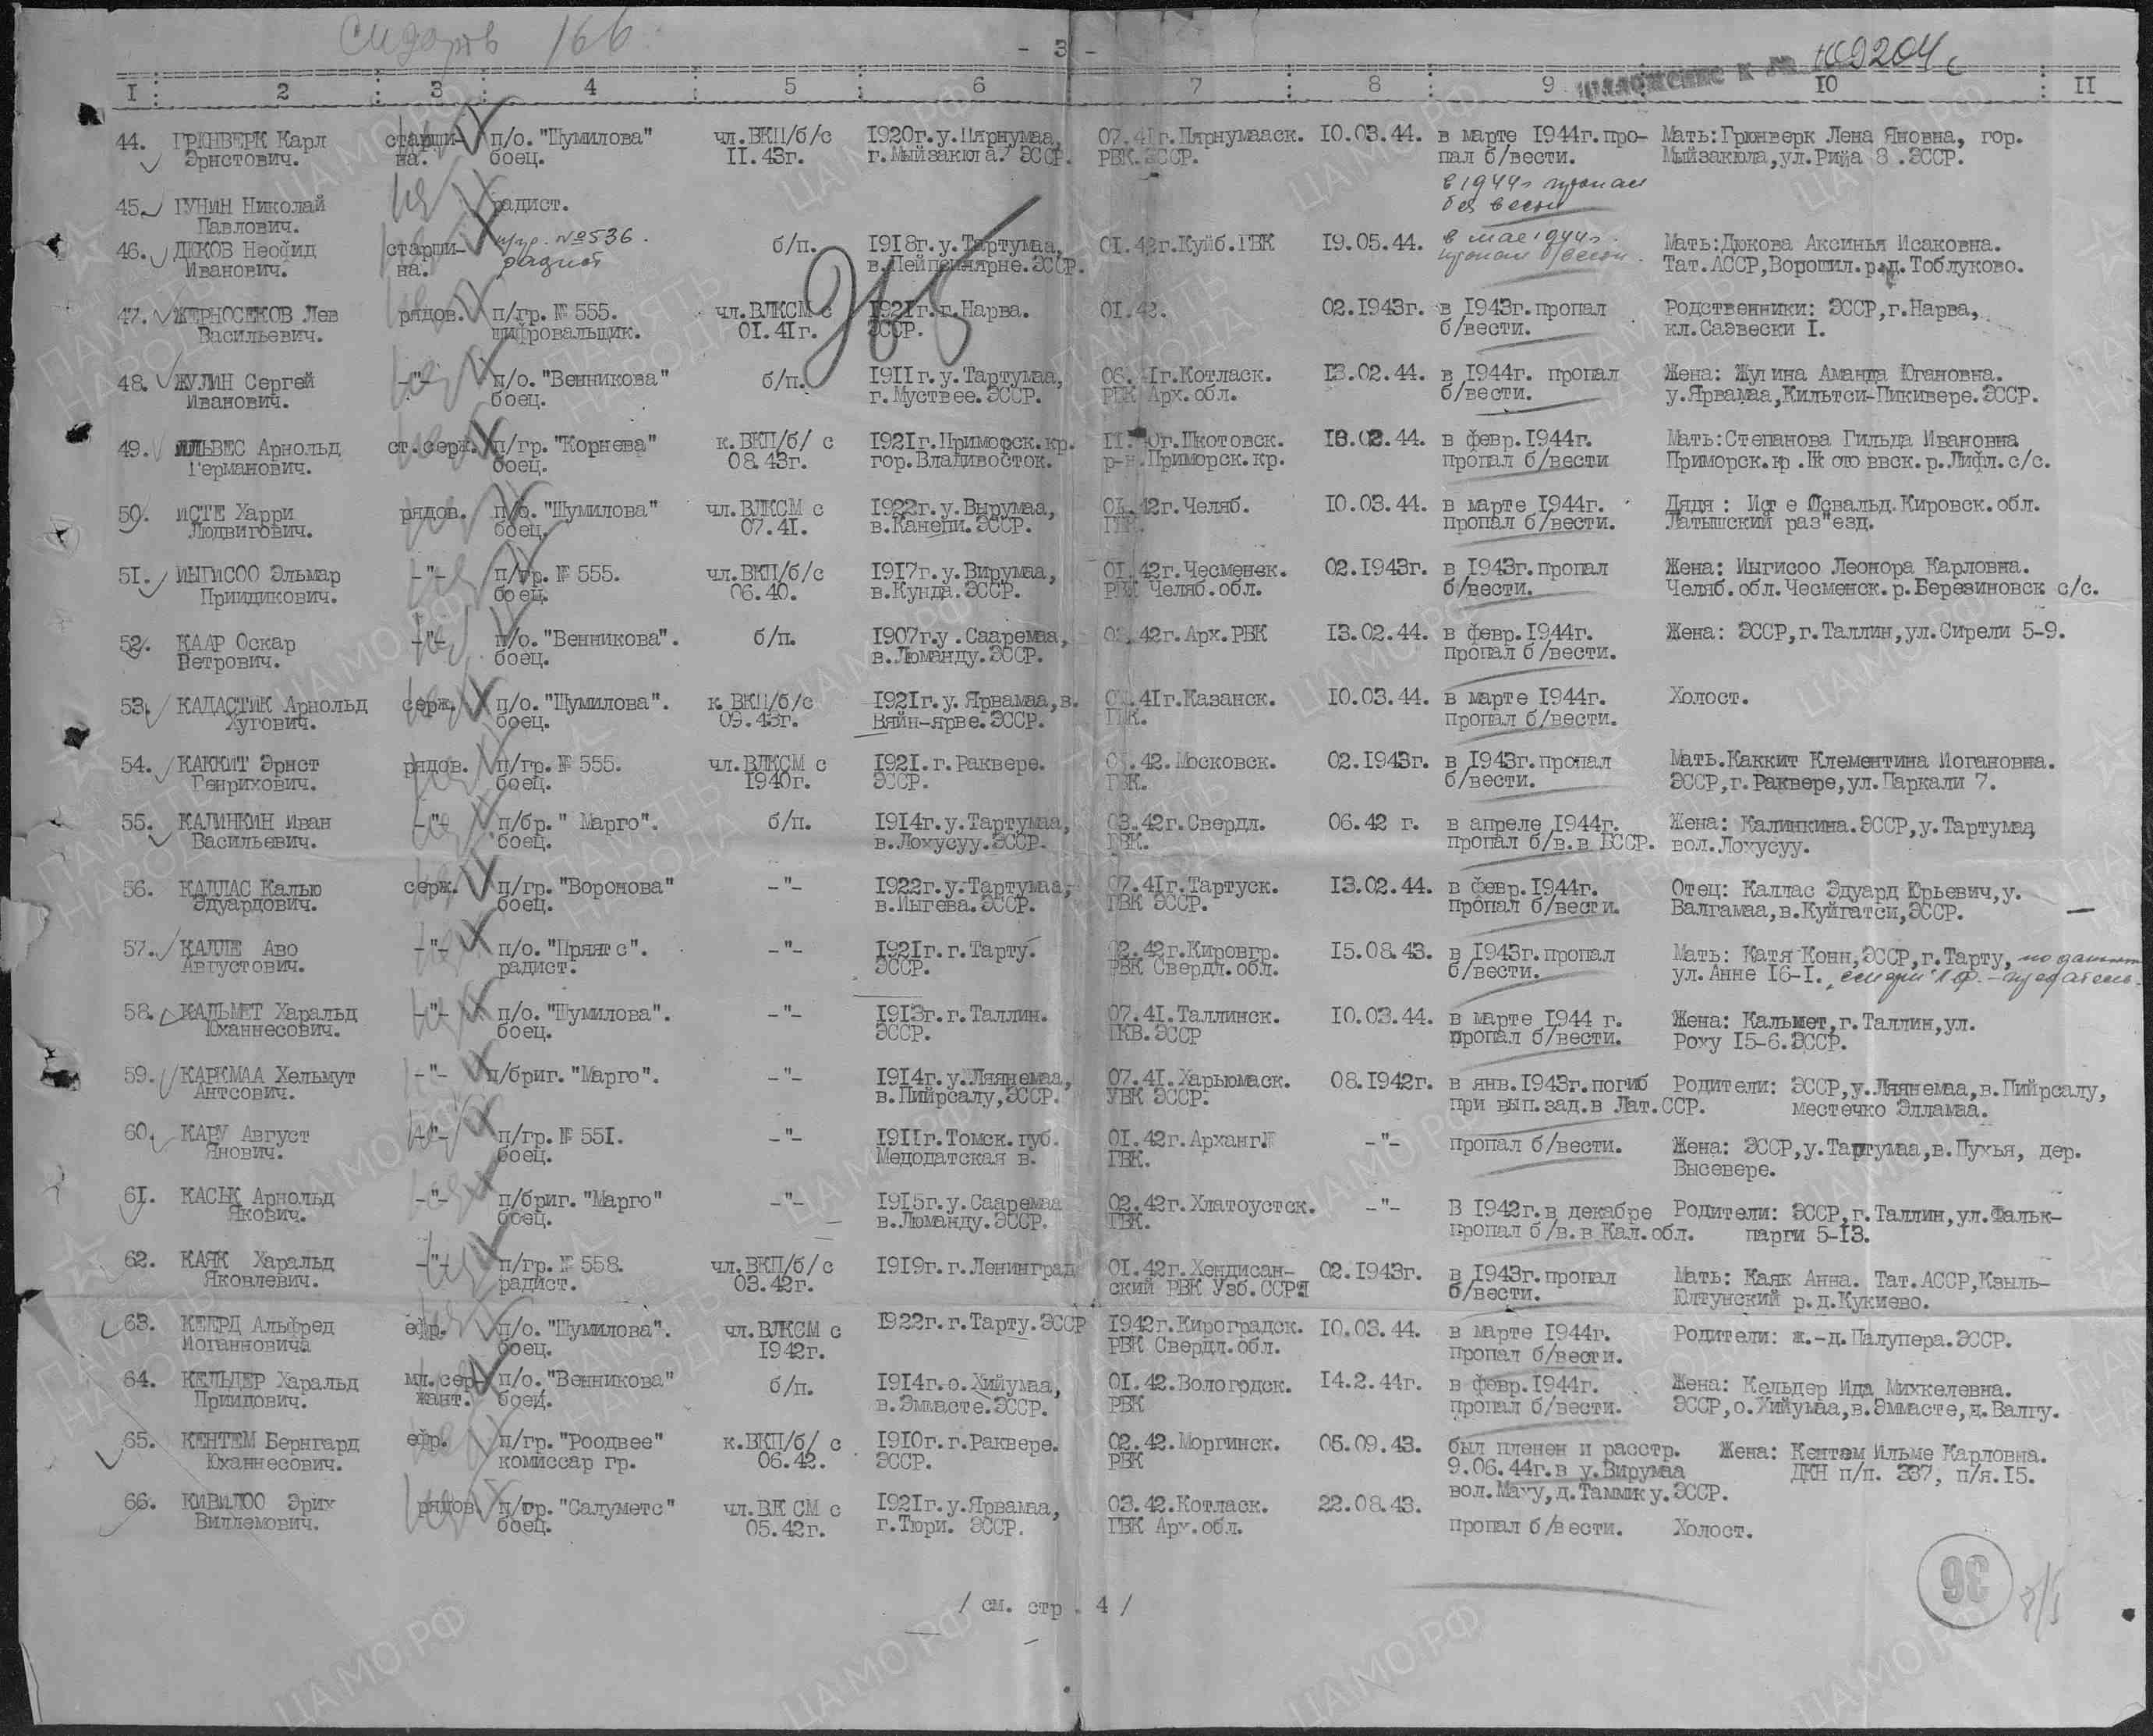 Сидоров 166
- 3 -
приложение к № 109204с
I 2 3 4 5 6 7 8 9 10 II
44. ГРЮНВЕРК Карл старши- п/о. "Шумилова" чл.ВКП/б/с 1920г.у.Пярнумаа, 07.41г.Пярнумааск. 10.03.44. в марте 1944г. про- Мать:Грюнверк Лена Яновна, гор.
Эрнстович. на. боец. II.43г. г.Мыйзакюла. ЭССР. РВК.ЭССР. пал б/вести. Мыйзакюла,ул.Рийа 8 .ЭССР.
в 1944г пропал
45. ГУНИН Николай радист. без вести
Павлович. гр. №536.
46. ДЮКОВ Неофид старши- радист б/п. 1918г.у.Тартумаа, 01.42г.Куйб.ГВК 19.05.44. в мае 1944г. Мать:Дюкова Аксинья Исаковна.
Иванович. на. в.Пейпсиярне.ЭССР. пропал б/вести. Тат.АССР,Ворошил.р.д.Тоблуково.
47. ЖЕРНОСЕКОВ Лев рядов. п/гр. № 555. чл.ВЛКСМ с 1921г.г.Нарва. 01.42. 02.1943г. в 1943г.пропал Родственники: ЭССР,г.Нарва,
Васильевич. шифровальщик. 01.41г. ЭССР. б/вести. кл.Саэвески I.
48. ЖУЛИН Сергей -"- п/о. "Венникова" б/п. 1911г.у.Тартумаа, 06. 1г.Котласк. 13.02.44. в 1944г. пропал Жена: Жулина Аманда Югановна.
Иванович. боец. г.Муствее.ЭССР. РВК Арх.обл. б/вести. у.Ярвамаа,Кильтси-Пикивере.ЭССР.
49. ИЛЬВЕС Арнольд ст.серж. п/гр. "Корнева" к.ВКП/б/ с 1921г.Приморск.кр. г.Шкотовск. 18.02.44. в февр.1944г. Мать:Степанова Гильда Ивановна
Германович. боец. 08.43г. гор.Владивосток. р-н.Приморск.кр. пропал б/вести Приморск.кр.Шкотоввск.р.Лифл.с/с.
50. ИСТЕ Харри рядов. п/о. "Шумилова" чл.ВЛКСМ с 1922г.у.Вырумаа, 01.42г.Челяб. 10.03.44. в марте 1944г. Дядя : Исте Освальд.Кировск.обл.
Людвигович. боец. 07.41. в.Канепи.ЭССР. ГВК. пропал б/вести. Латышский раз"езд.
51. ИЫГИСОО Эльмар -"- п/гр. № 555. чл.ВКП/б/с 1917г.у.Вирумаа, 01.42г.Чесменск. 02.1943г. в 1943г.пропал Жена: Иыгисоо Леонора Карловна.
Приидикович. боец. 06.40. в.Кунда.ЭССР. РВК Челяб.обл. б/вести. Челяб.обл.Чесменск.р.Березиновск с/с.
52. КААР Оскар -"- п/о. "Венникова". б/п. 1907г.у.Сааремаа, 42г.Арх.РВК 13.02.44. в февр.1944г. Жена: ЭССР,г.Таллин,ул.Сирели 5-9.
Петрович. боец. в.Люманду.ЭССР. пропал б/вести.
53. КАДАСТИК Арнольд серж. п/о. "Шумилова". к.ВКП/б/с 1921г.у.Ярвамаа,в. 41г.Казанск. 10.03.44. в марте 1944г. Холост.
Хугович. боец. 09.43г. Вяйн-ярве.ЭССР. ГВК. пропал б/вести.
54. КАККИТ Эрнст рядов. п/гр.№ 555. чл.ВЛКСМ с 1921.г.Раквере. 42.Московск. 02.1943г. в 1943г.пропал Мать.Каккит Клементина Иогановна.
Генрихович. боец. 1940г. ЭССР. ГВК. б/вести. ЭССР,г.Раквере,ул.Паркали 7.
55. КАЛИНКИН Иван -"- п/бр. " Марго". б/п. 1914г.у.Тартумаа, 03.42г.Свердл. 06.42 г. в апреле 1944г. Жена: Калинкина.ЭССР,у.Тартумаа,
Васильевич. боец. в.Лохусуу.ЭССР. ГВК. пропал б/в.в БССР. вол.Лохусуу.
56. КАЛЛАС Калью серж. п/гр. "Воронова" -"- 1922г.у.Тартумаа, 07.41г.Тартуск. 13.02.44. в февр.1944г. Отец: Каллас Эдуард Юрьевич,у.
Эдуардович. боец. в.Иыгева.ЭССР. ГВК ЭССР. пропал б/вести. Валгамаа,в.Куйгатси,ЭССР.
57. КАЛЛЕ Аво -"- п/о. "Пряятс". -"- 1921г.г.Тарту. 02.42г.Кировгр. 15.08.43. в 1943г.пропал Мать: Катя Конн,ЭССР,г.Тарту, по данным
Августович. радист. ЭССР. РВК Свердл.обл. б/вести. ул.Анне 16-1.
58. КАЛЬМЕТ Харальд -"- п/о. "Шумилова". -"- 1913г.г.Таллин. 07.41.Таллинск. 10.03.44. в марте 1944 г. Жена: Кальмет,г.Таллин,ул.
Юханнесович. боец. ЭССР. ГКВ.ЭССР пропал б/вести. Роху 15-6.ЭССР.
59. КАРКМАА Хельмут -"- п/бриг. "Марго". -"- 1914г.у.Ляянемаа, 07.41.Харьюмаск. 08.1942г. в янв.1943г.погиб Родители: ЭССР,у.Ляянемаа,в.Пийрсалу,
Антсович. в.Пийрсалу,ЭССР. УВК ЭССР. при вып.зад.в Лат.ССР. местечко Элламаа.
60. КАРУ Август -"- п/гр.№ 551. -"- 1911г.Томск.губ. 01.42г.Арханг. -"- пропал б/вести. Жена: ЭССР,у.Тартумаа,в.Пухья, дер.
Янович. боец. Медодатская в. ГВК. Высевере.
61. КАСЬК Арнольд -"- п/бриг. "Марго" -"- 1915г.у.Сааремаа 02.42г.Хлатоустск. -"- В 1942г.в декабре Родители: ЭССР,г.Таллин,ул.Фальк-
Якович. боец. в.Люманду.ЭССР. ГВК. пропал б/в.в Кал.обл. парги 5-13.
62. КАЯК Харальд -"- п/гр.№ 558. чл.ВКП/б/с 1919г.г.Ленинград 01.42г.Хендисан- 02.1943г. в 1943г.пропал Мать: Каяк Анна. Тат.АССР,Квыль-
Яковлевич. радист. 03.42г. ский РВК Узб.ССР б/вести. Юлтунский р.д.Кукиево.
63. КЕЕРД Альфред ефр. п/о. "Шумилова". чл.ВЛКСМ с 1922г.г.Тарту.ЭССР 1942г.Кироградск. 10.03.44. в марте 1944г. Родители: ж.-д.Палупера.ЭССР.
Иоганновича боец. 1942г. РВК Свердл.обл. пропал б/вести.
64. КЕЛЬДЕР Харальд мл.сер- п/о. "Венникова" б/п. 1914г.о.Хийумаа, 01.42.Вологодск. 14.2.44г. в февр.1944г. Жена: Кельдер Ида Михкелевна.
Приидович. жант. боец. в.Эммасте.ЭССР. РВК пропал б/вести. ЭССР,о.Хийумаа,в.Эммасте,д.Валгу.
65. КЕНТЕМ Бернгард ефр. п/гр. "Роодвее" к.ВКП/б/ с 1910г.г.Раквере. 02.42.Моргинск. 05.09.43. был пленен и расстр. Жена: Кентем Ильме Карловна.
Юханнесович. комиссар гр. 06.42. ЭССР. РВК 9.06.44г.в у.Вирумаа ДКН п/п. 337, п/я.15.
вол.Маху,д.Таммику.ЭССР.
66. КИВИЛОО Эрих рядов. п/гр. "Салуметс" чл.ВЛКСМ с 1921г.у.Ярвамаа, 03.42.Котласк. 22.08.43.
Виллемович. боец. 05.42г. г.Тюри. ЭССР. ГВК Арх.обл. пропал б/вести. Холост.
/ см. стр. 4 /
36